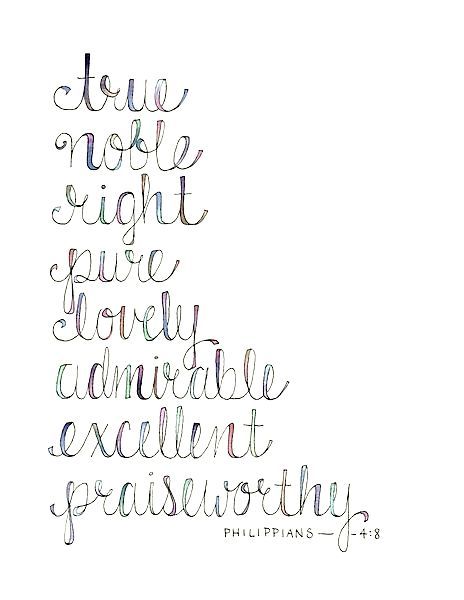 true
noble
right
pure
lovely
admirable
excellent
praiseworthy
PHILIPPIANS — 4:8